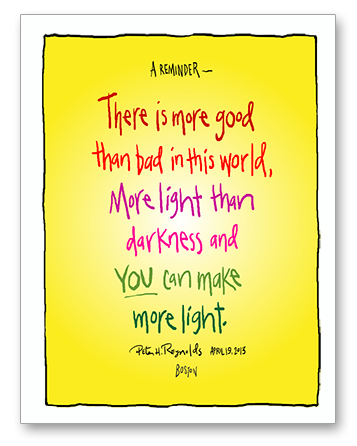 A REMINDER —
There is more good
than bad in this world,
More light than
darkness and
YOU can make
more light.
Peter H. Reynolds APRIL 19. 2013
BOSTON